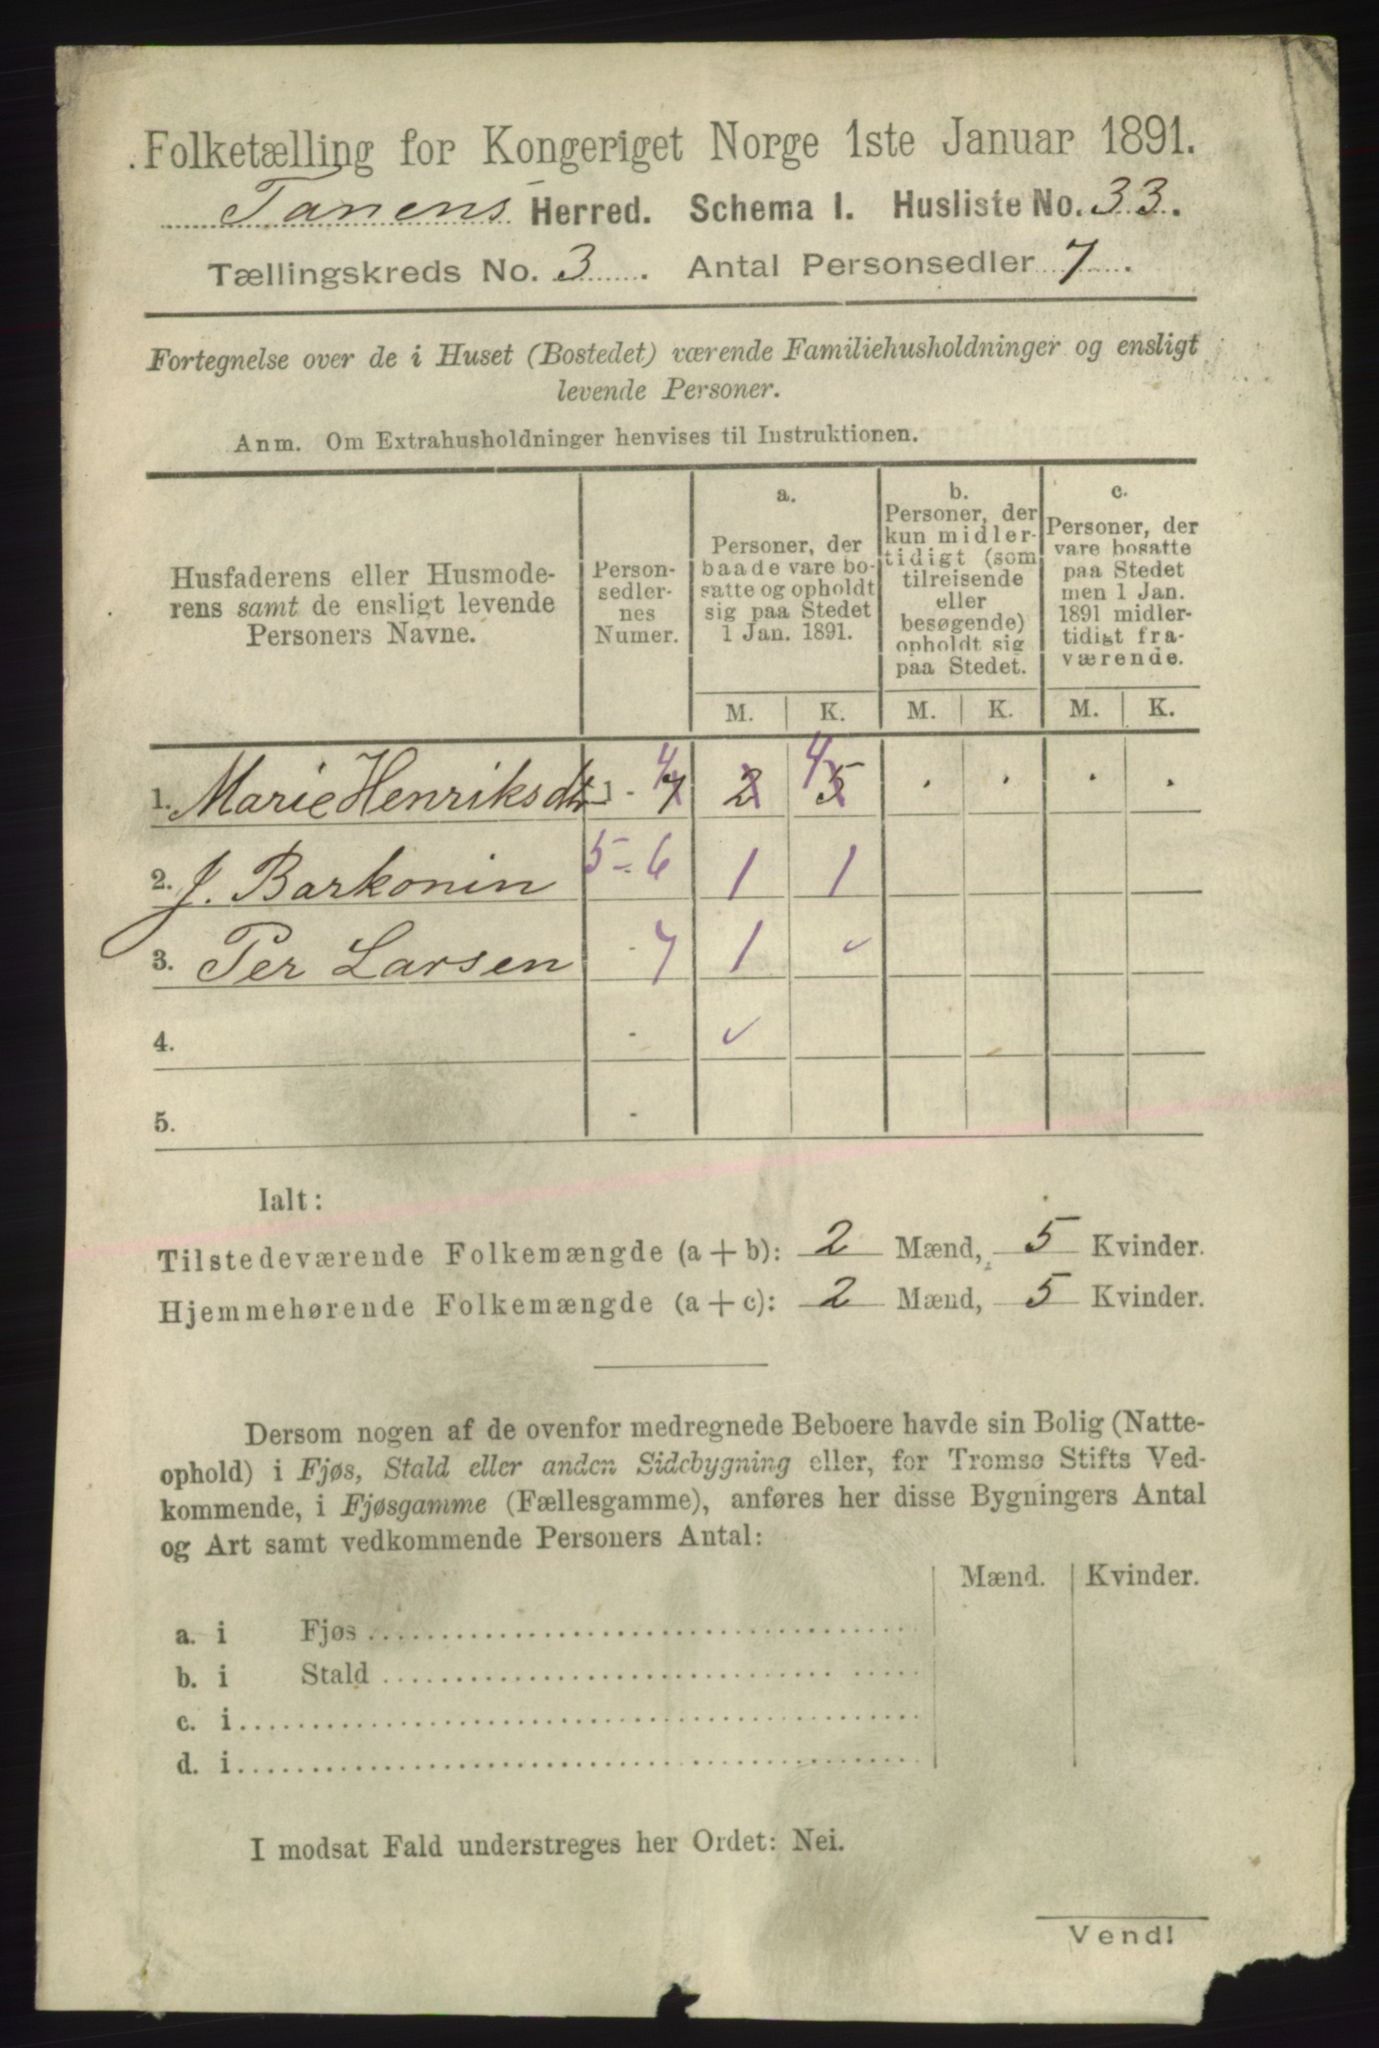 Folketælling for Kongeriget Norge 1ste Januar 1891.
Tanens Herred. Schema 1. Husliste No. 33.
Tællingskreds No. 3. Antal Personsedler 7.
Fortegnelse over de i Huset (Bostedet) værende Familiehusholdninger og ensligt
levende Personer.
Anm. Om Extrahusholdninger henvises til Instruktionen.
Husfaderens eller Husmode-
rens samt de ensligt levende
Personers Navne.
Person-
sedler-
nes
Numer.
a.
Personer, der
baade vare bo-
satte og opholdt
sig paa Stedet
1 Jan. 1891.
b.
Personer, der
kun midler-
tidigt (som
tilreisende
eller
besøgende)
opholdt sig
paa Stedet.
c.
Personer, der
vare bosatte
paa Stedet
men 1 Jan.
1891 midler-
tidigt fra-
værende.
M. K. M. K. M. K.
1. Marie Henriksdtr 1 - 7 4 2 5 4 . . . .
2. J. Barkonin 5 - 6 1 1
3. Per Larsen - 7 1 ✓
4. - ✓
5. -
Ialt:
Tilstedeværende Folkemængde (a + b): 2 Mænd, 5 Kvinder.
Hjemmehørende Folkemængde (a + c): 2 Mænd, 5 Kvinder.
Dersom nogen af de ovenfor medregnede Beboere havde sin Bolig (Natte-
ophold) i Fjøs, Stald eller anden Sidebygning eller, for Tromsø Stifts Ved-
kommende, i Fjøsgamme (Fællesgamme), anføres her disse Bygningers Antal
og Art samt vedkommende Personers Antal:
Mænd. Kvinder.
a. i Fjøs
b. i Stald
c. i
d. i
I modsat Fald understreges her Ordet: Nei.
Vend!